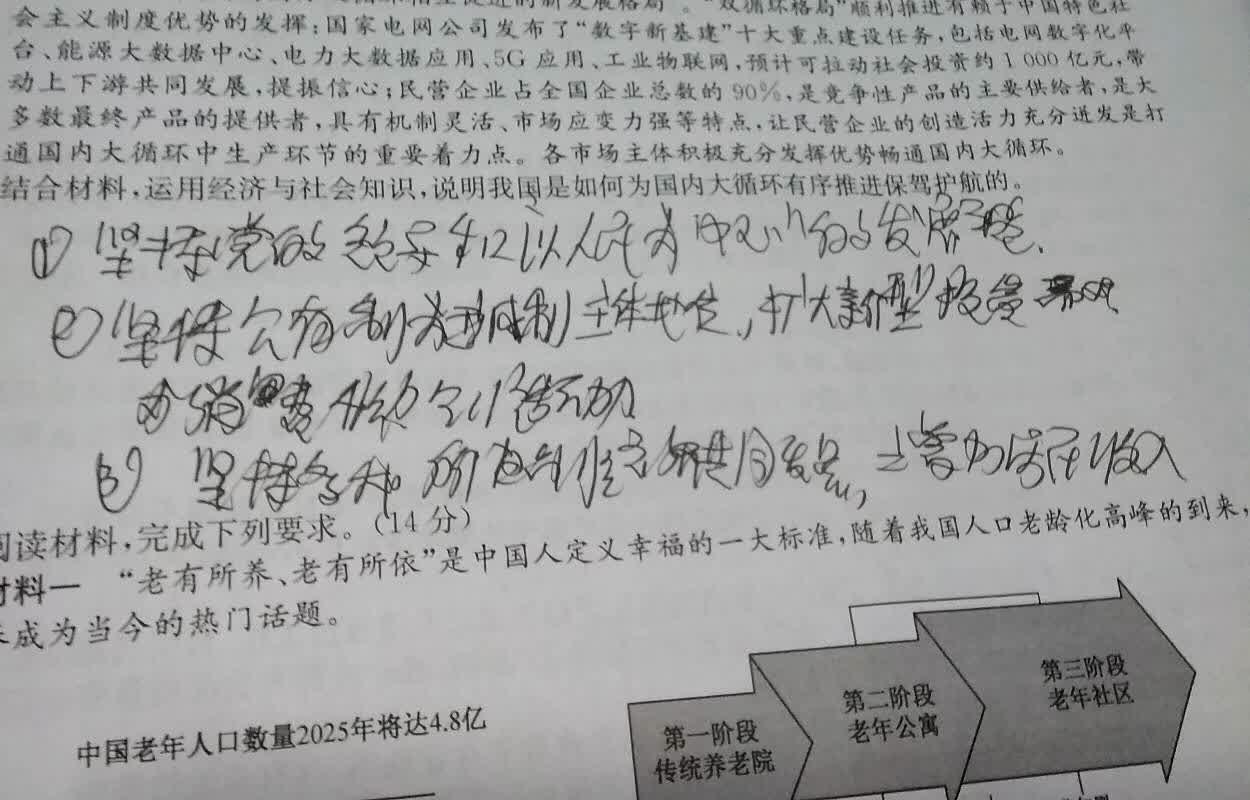 会主义制度优势的发挥;国家电网公司发布了“数字新基建”十大重点建设任务,包括电网数字化平
台、能源大数据中心、电力大数据应用、5G 应用、工业物联网,预计可拉动社会投资约 1 000 亿元,带
动上下游共同发展,提振信心;民营企业占全国企业总数的 90%,是竞争性产品的主要供给者,是大
多数最终产品的提供者,具有机制灵活、市场应变力强等特点,让民营企业的创造活力充分迸发是打
通国内大循环中生产环节的重要着力点。各市场主体积极充分发挥优势畅通国内大循环。
结合材料,运用经济与社会知识,说明我国是如何为国内大循环有序推进保驾护航的。
① 坚持党的领导和以人民为中心的发展
② 坚持公有制 主体地位,扩大新型投资
消费
③ 坚持各种所有制经济共同发展, 增加居民收入
阅读材料,完成下列要求。(14 分)
材料一 “老有所养、老有所依”是中国人定义幸福的一大标准,随着我国人口老龄化高峰的到来,
成为当今的热门话题。
中国老年人口数量2025年将达4.8亿
第一阶段
传统养老院
第二阶段
老年公寓
第三阶段
老年社区